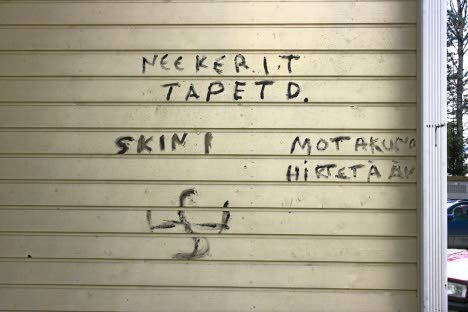 NEEKER.I.T
TAPET D.
SKIN I
MOTAKUNO
HIRTETÄÄN